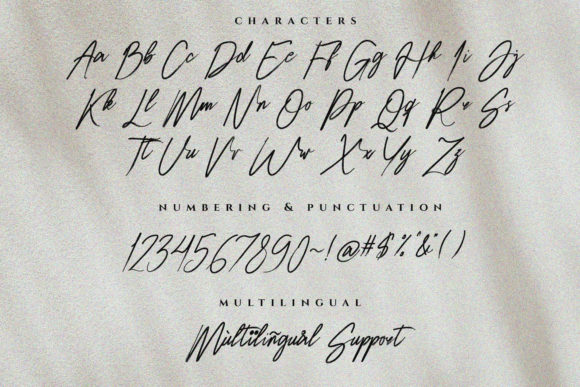 CHARACTERS
Aa Bb Cc Dd Ee Ff Gg Hh Ii Jj
Kk Ll Mm Nn Oo Pp Qq Rr Ss
Tt Uu Vv Ww Xx Yy Zz
NUMBERING & PUNCTUATION
1234567890~!@#$%"&'()
MULTILINGUAL
Mùltïlîñgúål Support